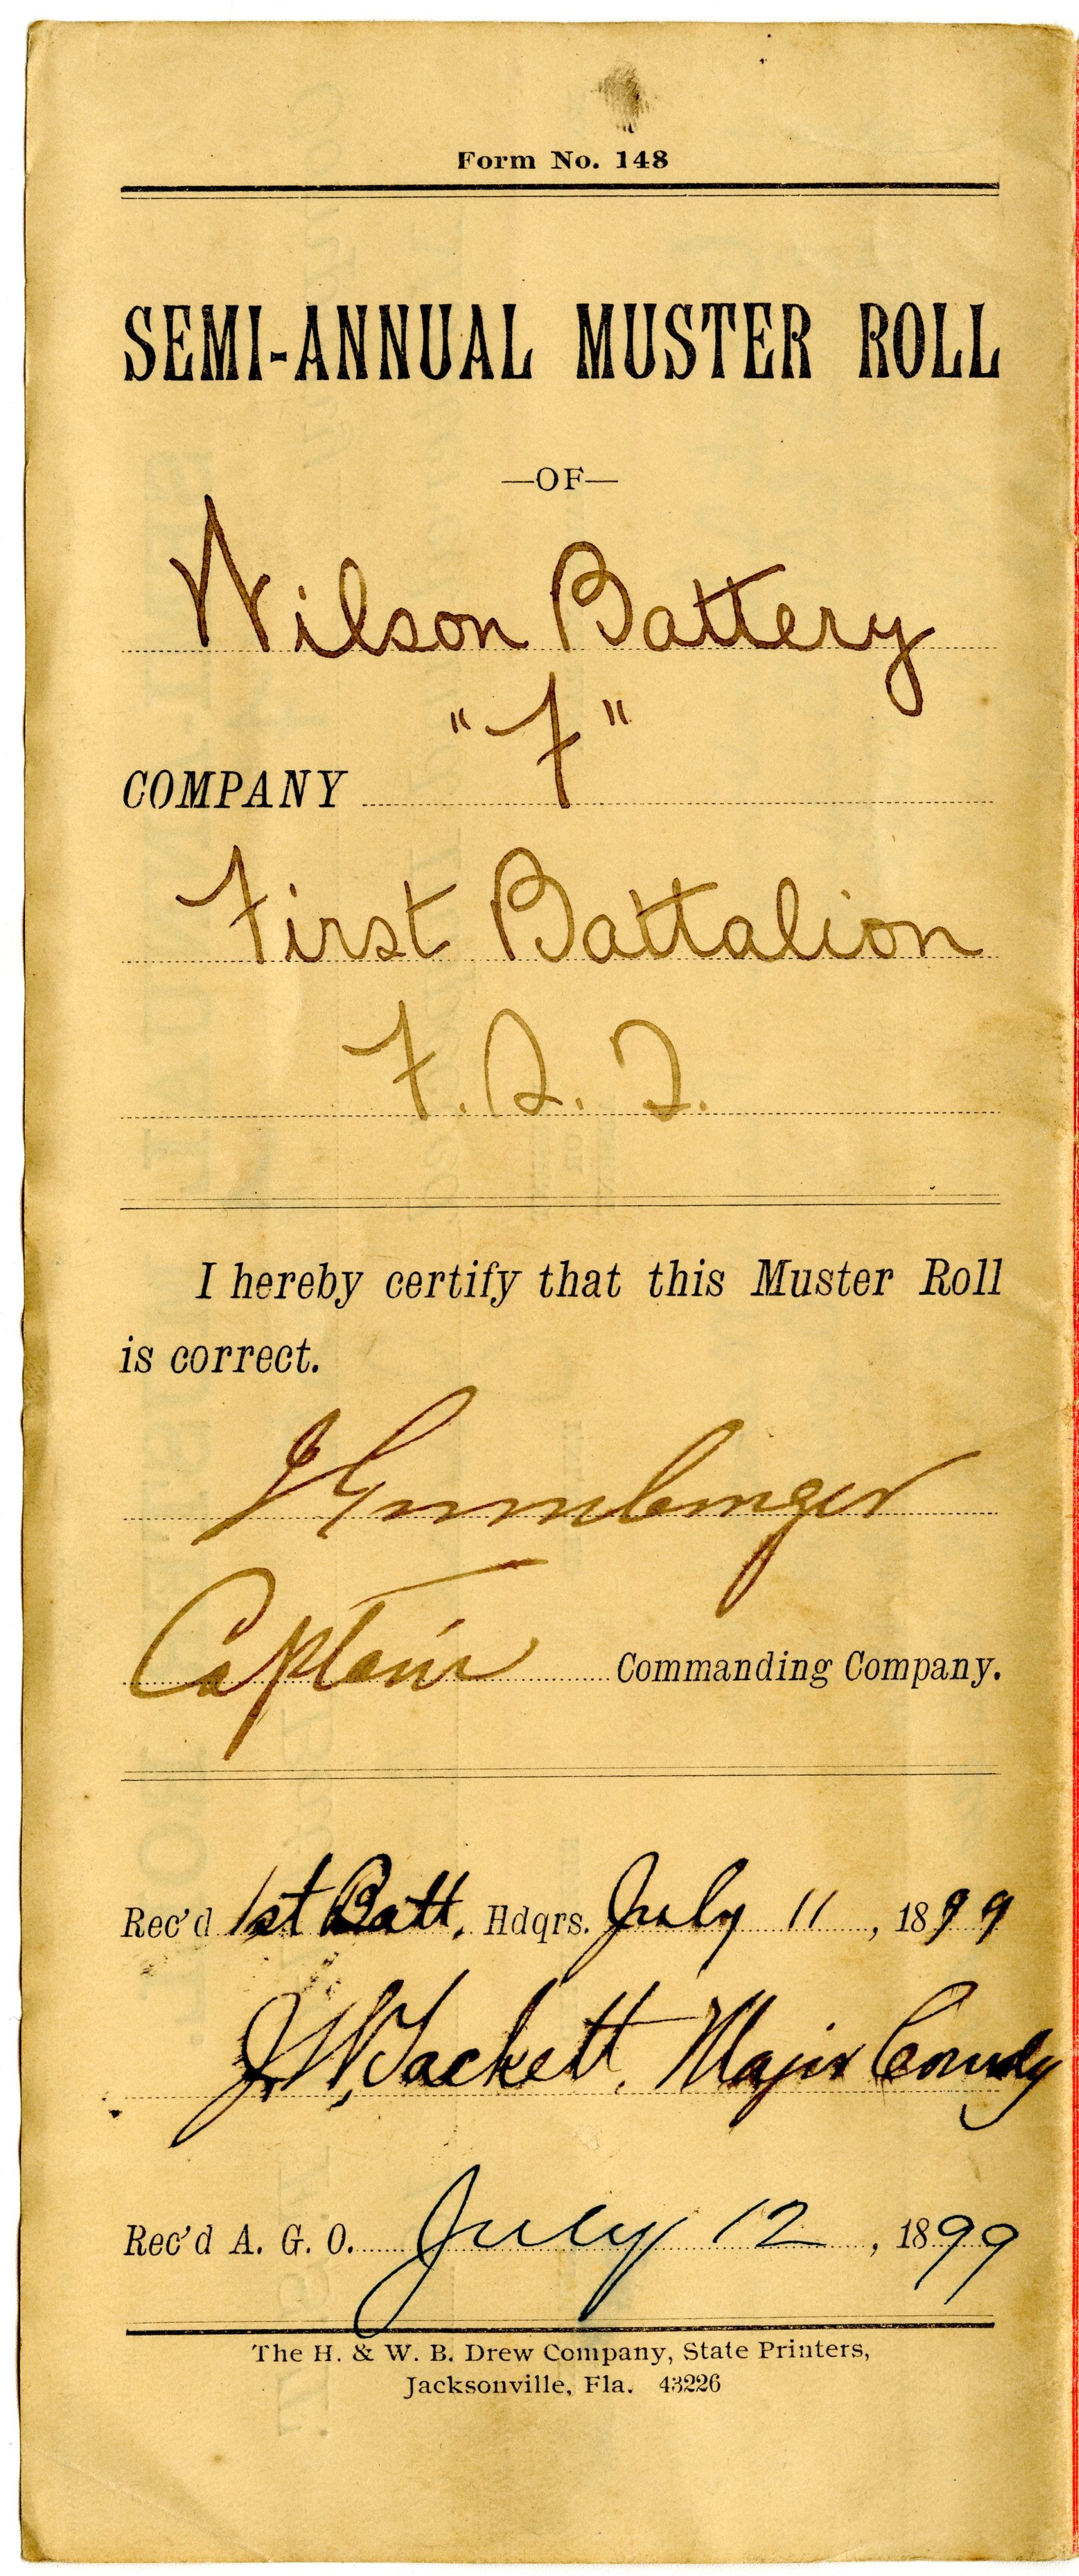 Form No. 148
SEMI-ANNUAL MUSTER ROLL
—OF—
Wilson Battery
"F"
COMPANY
First Battalion
F. S. T.
I hereby certify that this Muster Roll
is correct.
Captain Commanding Company.
Rec'd 1st Batt. Hdqrs. July 11, 1899
J. W. Sackett, Major Comdg
Rec'd A. G. O. July 12, 1899
The H. & W. B. Drew Company, State Printers,
Jacksonville, Fla. 43226